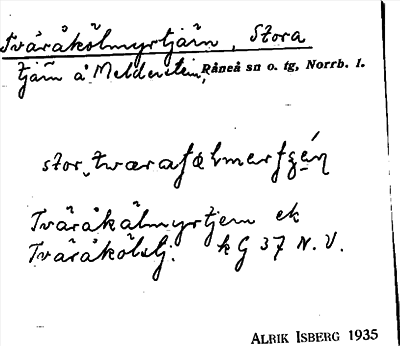 Tväråkölmyrtjärn, Stora
tjärn å Meldenstein, Råneå sn o. tg, Norrb. l.
stor
Tväråkälmyrtjern ek
Tväråkölstj. kG 37 N. V.
ALRIK ISBERG 1935